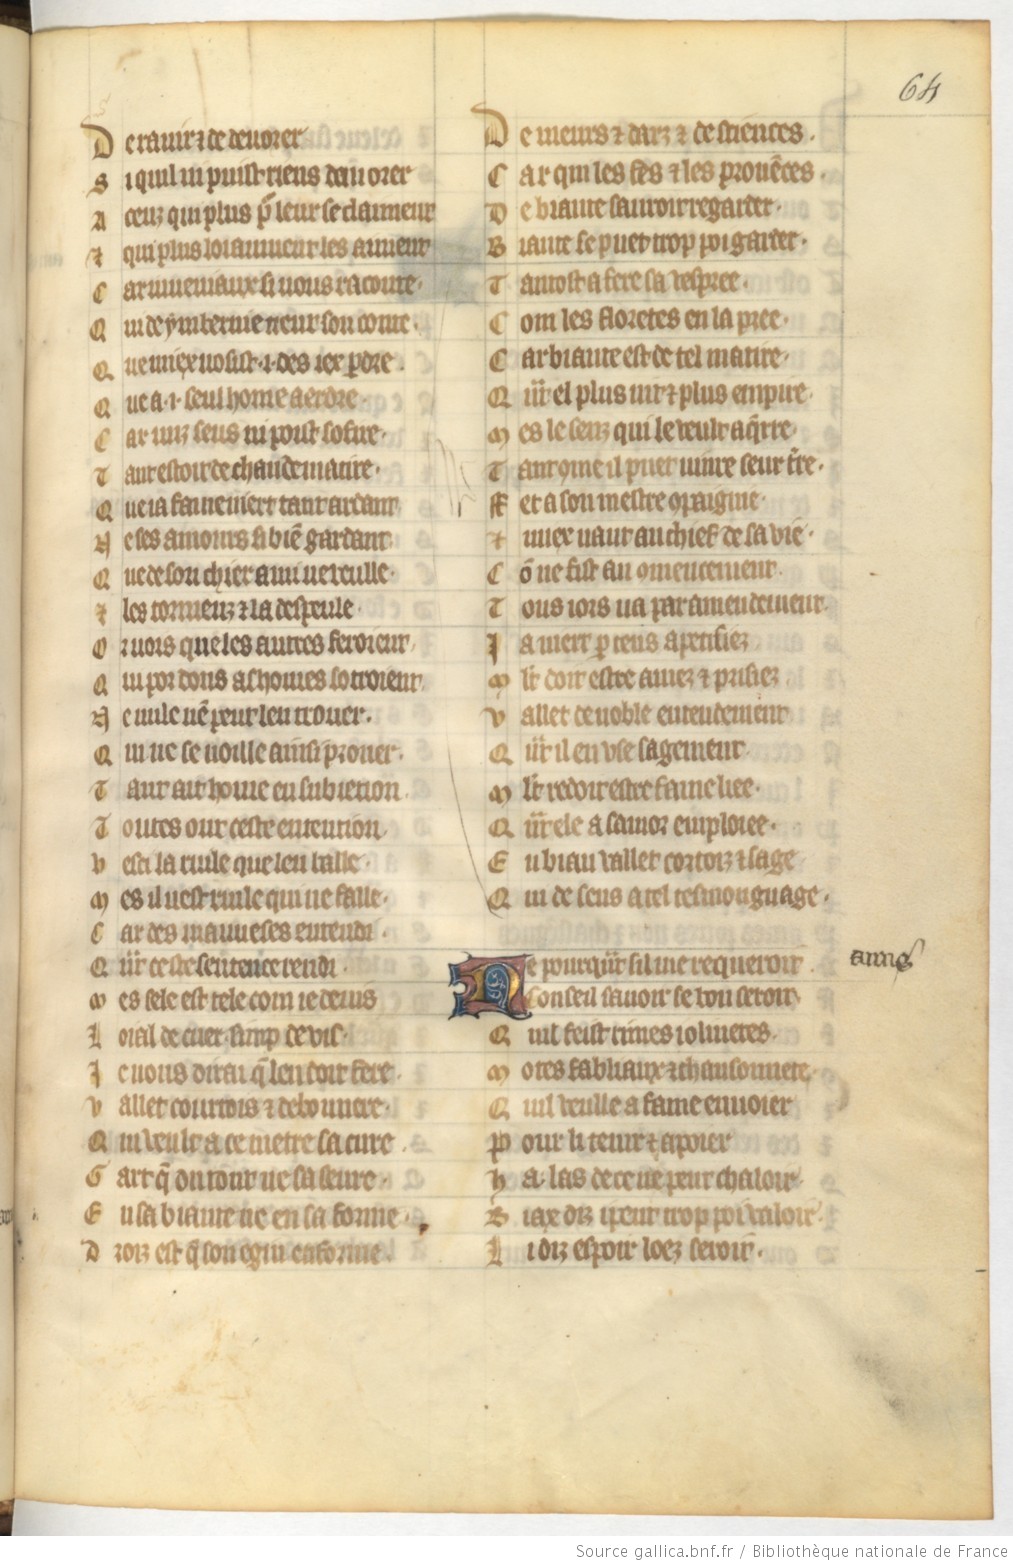 64
De rauir ⁊ de deuorer
Si quil ni puist riens deuorer
A ceuz qui plus p̃ leur se claimeur
⁊ qui plus loiaumeur les aimeur
Car iuuenaux si uous raconte·
Qui de ymberine neur son conte·
Que miex uosist ·i· des iex ꝑdre·
Que a ·i· seul home aerdre·
Car
Tant estoit de chaude matire·
Que ia fame niert tant ardant
Ne ses amours si biẽ gardant
Que de son chier ami ne ueulle·
⁊ les tormenz ⁊ la despeulle·
Or uors que les autres feroient
Qui por dons as homes sotroient
Ne nule nẽ peut len trouer·
Qui ne se uoille ainsi prouer·
Tant ait home en subiection
Toutes ont ceste entention
Vesci la riule que len baille·
Mes il nest riule qui ne faille·
Car des mauueses entendi·
Quãt ceste sentence rendi·
Mes sele est tele com ie deuis
Loial de cuer simp de vis·
Ie uous dirai q̃ len doit fere·
Vallet courtois ⁊ debonnere·
Qui ueult a ce metre sa cure
Gart q̃ du tout ne sa seure·
En sa biaute ne en sa forme·
Droiz est q̃ son egin enforme·
De meurs ⁊ darz ⁊ de sciences·
Car qui les fĩs ⁊ les prouẽces·
De biaute sauroit regarder·
Biaute se puet trop poi garder·
Tantost a fete sa vespree·
Com les floretes en la pree·
Car biaute est de tel matire·
Quãt el plus uit ⁊ plus empire·
Mes le senz qui le veult aq̃rre·
Tant ꝯme il puet uiure seur t̃re·
Fet a son mestre ꝯpaignie·
⁊ miex uaut au chief de sa vie·
Cõ ne fist au ꝯmencement
Tous iors ua par amendement·
Ia niert ꝑ tens apensiez
Mlt̃ doit estre amez ⁊ prisiez
Vallet de noble entendement
Quãt il en vse sagement·
Mlt̃ redoit estre fame liee·
Quãt ele a samor emploiee·
En biau vallet cortoiz ⁊ sage
Qui de sens a tel tesmongnage·
Ne pourquãt sil me requeroit·
Conseil sauoir se bon seroit·
Quil feist rimes ioliuetes·
Motes fabliaux ⁊ chansonnetes
Quil veulle a fame enuoier
Pour li tenir ⁊ apoier
Ha· las de ce ne peut chaloir·
Biax diz i peut trop poi valoir·
Li diz espoir loez seroit·